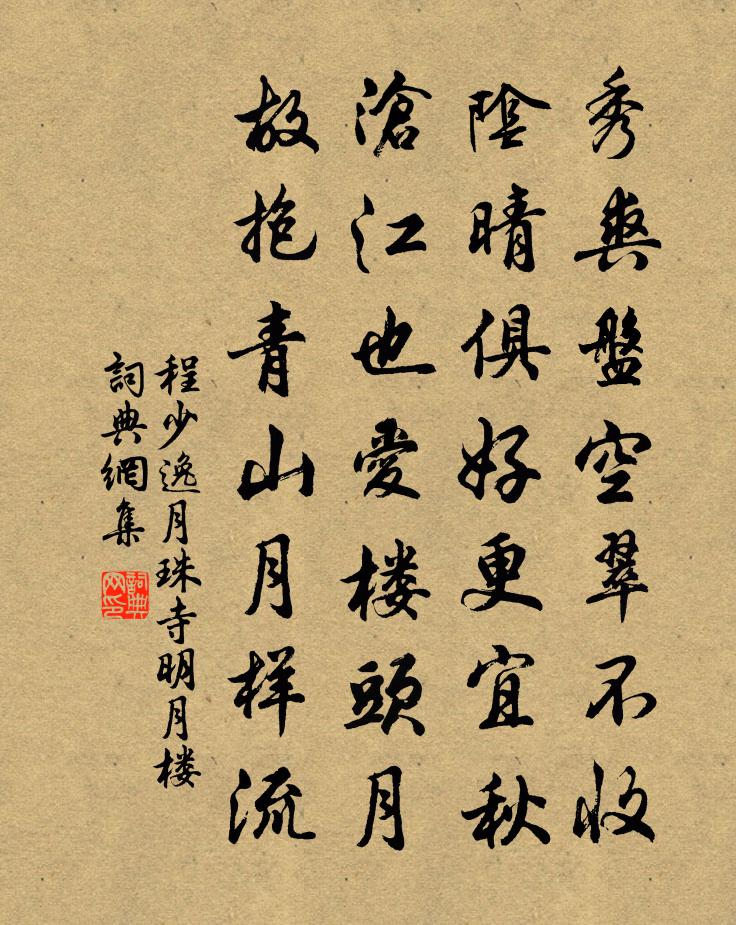 秀爽盤空翠不收
陰晴俱好更宜秋
滄江也愛楼頭月
故抱青山月样流
程少逸月珠寺明月楼
詞典網集
詞典网印